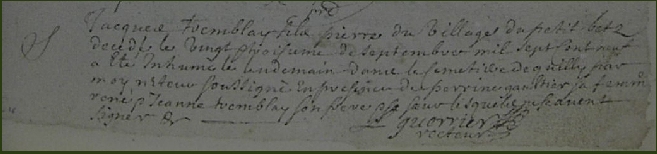 Jacques tremblay fils pierre du village du petit betz
decedé le vingt troisieme de septembre mil sept cent neuf
a esté Inhumé le lendemain dans le cemetiere de quilly par
moy recteur soussigné En presence de perrine gaultier sa femme
rené, Jeanne tremblay son pere et sa sœur lesquels ne scavent
signer &
guerrier
recteur